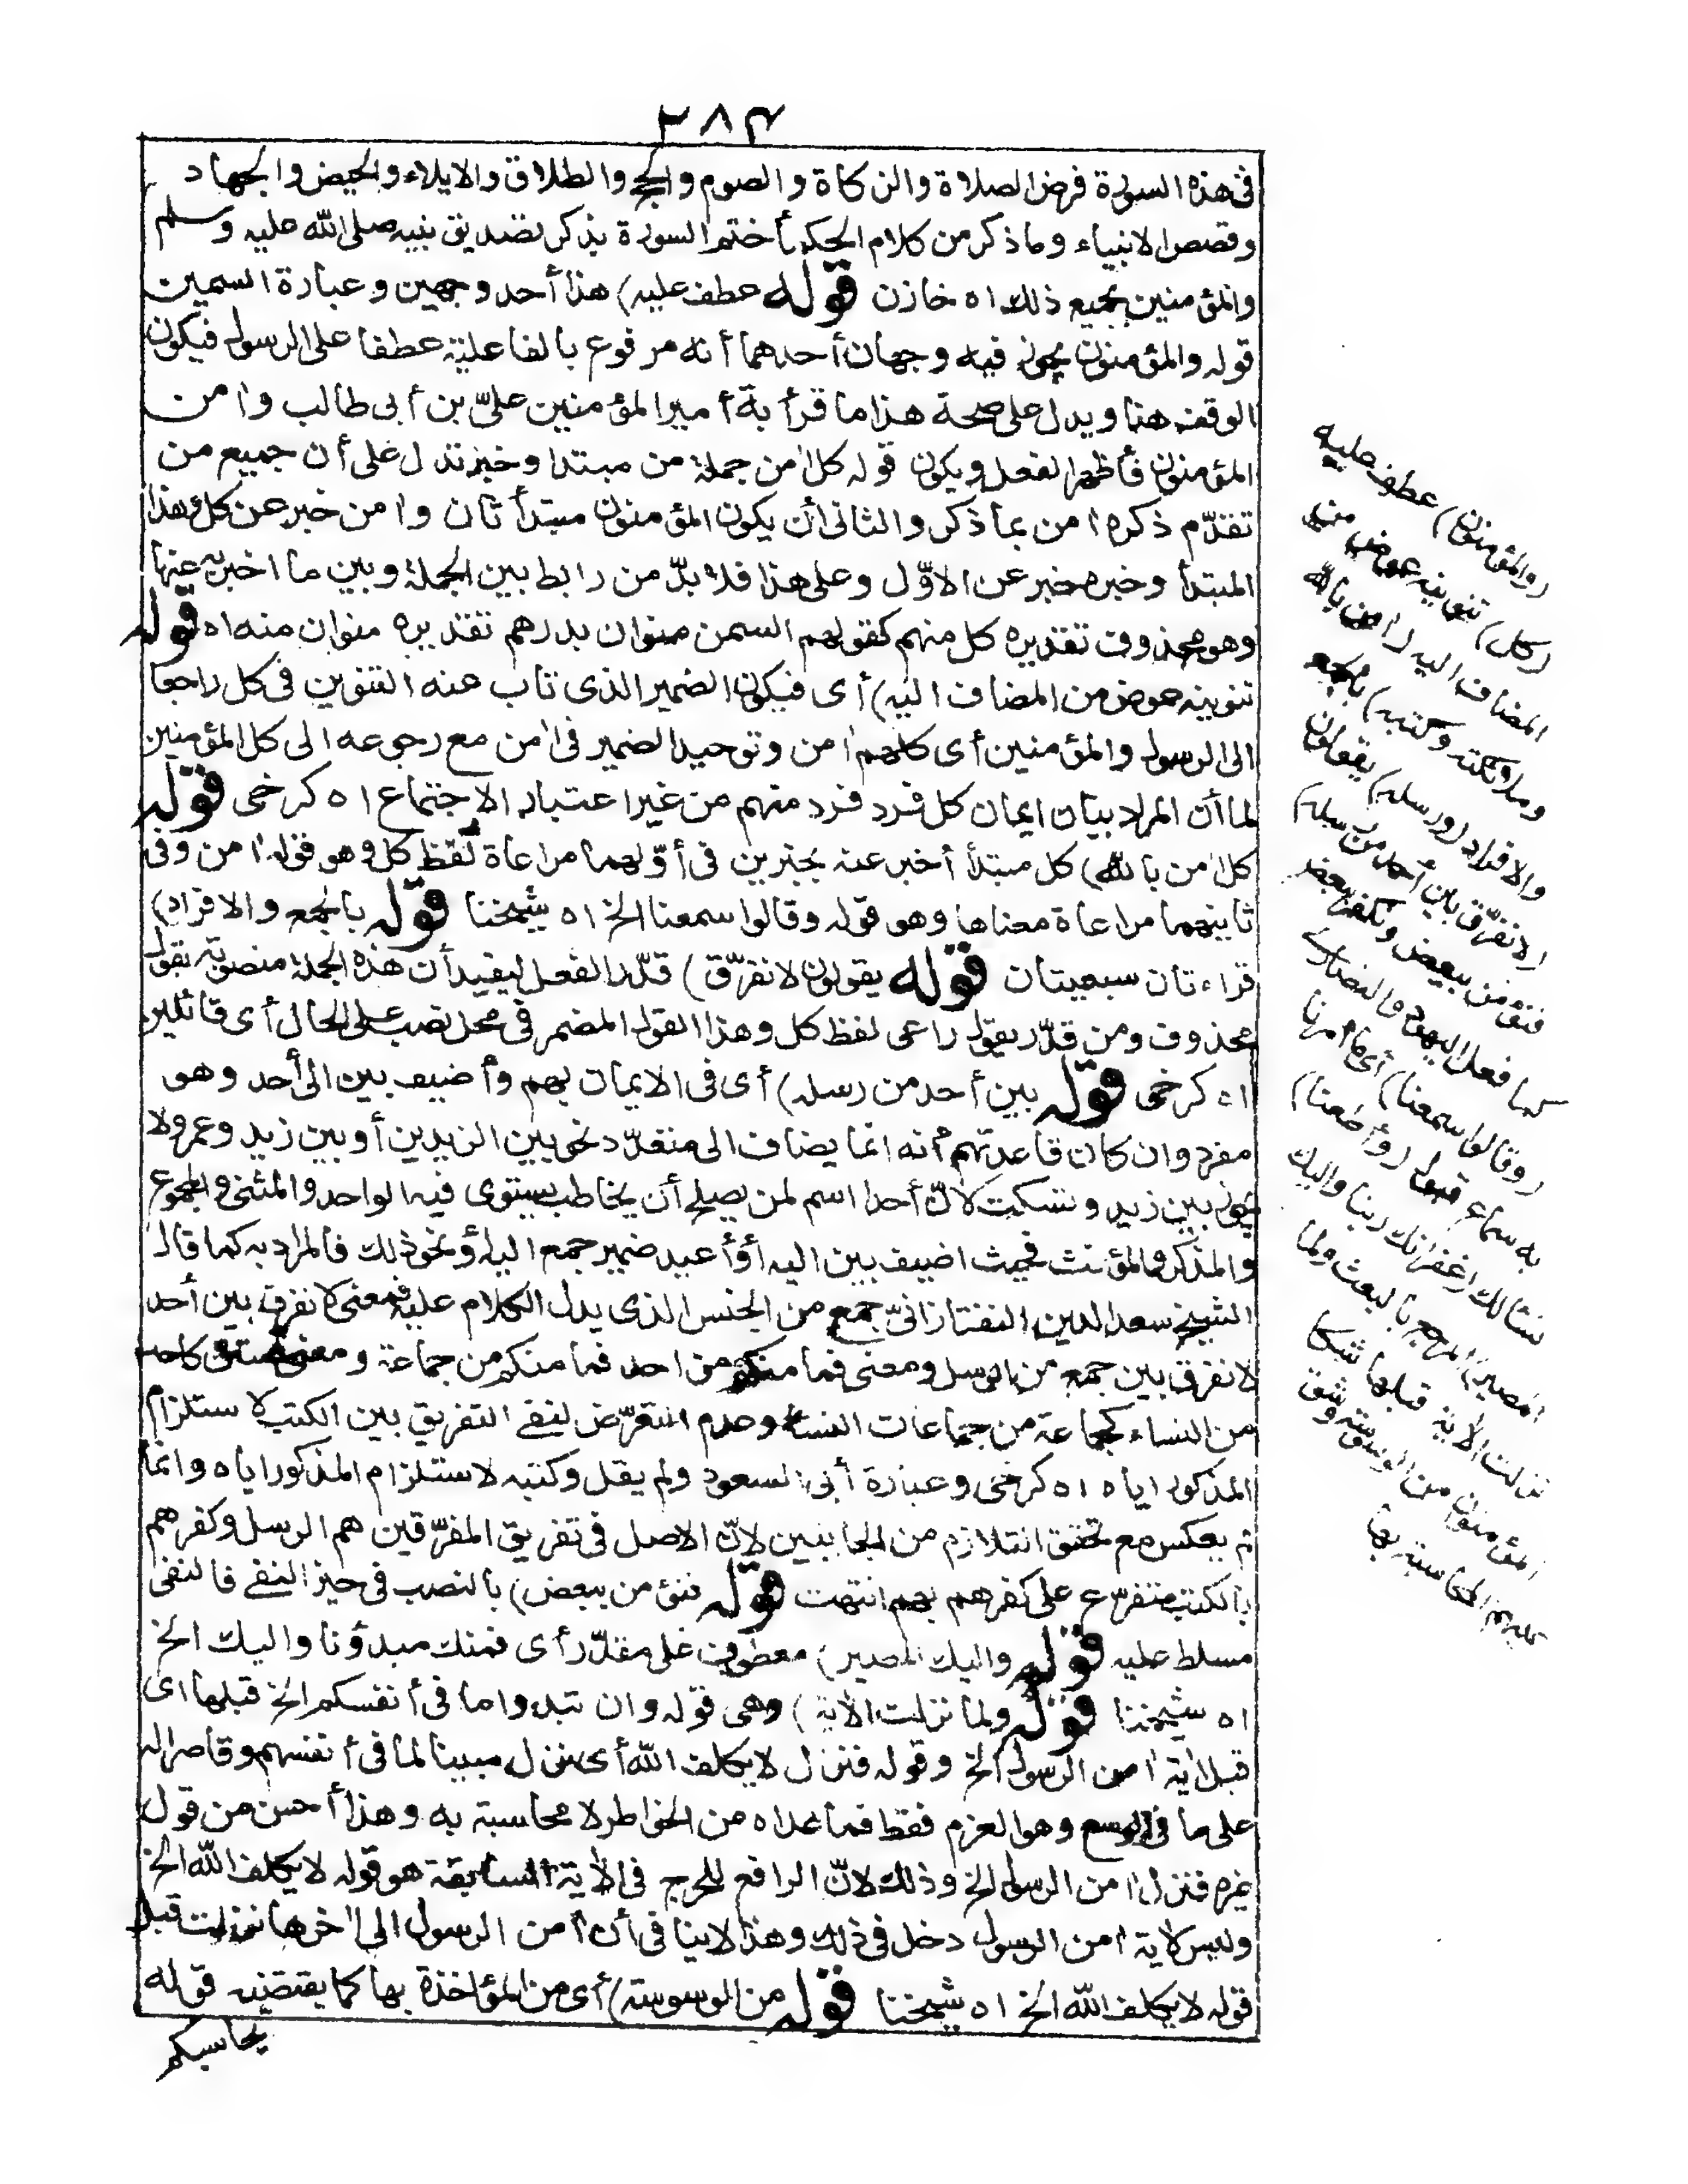 ٢٨٤
فى هذه السورة فرض الصلاة والزكاة والصوم والحج والطلاق والايلاء والحيض والجهاد
وقصص الانبياء وما ذكر من كلام الحكماء ختم السورة بذكر تصديق نبيه صلى الله عليه وسلم
والمؤمنين بجميع ذلك اه خازن قوله عطف عليه) هذا أحد وجهين وعبارة السمين
قوله والمؤمنون يجوز فيه وجهان أحدهما أنه مرفوع بالفاعلية عطفا على الرسول فيكون
الوقف هنا ويدل على صحة هذا ما قرأ به أمير المؤمنين علىّ بن أبى طالب وآمن
المؤمنون فأظهر الفعل ويكون قوله كل آمن جملة من مبتدا وخبر تدل على أن جميع من
تقدّم ذكره آمن بما ذكر والثانى أن يكون المؤمنون مبتدأ وكل مبتدأ ثان وآمن خبر عن كل وهذا
المبتدأ وخبره خبر عن الاوّل وعلى هذا فلا بدّ من رابط بين الجملة وبين ما اخبر به عنها
وهو محذوف تقديره كل منهم كقولهم السمن منوان بدرهم تقديره منوان منه اه قوله
تنوينه عوض من المضاف اليه) أى فيكون الضمير الذى ناب عنه التنوين فى كل راجعا
الى الرسول والمؤمنين أى كلهم آمن وتوحيد الضمير فى آمن مع رجوعه الى كل المؤمنين
لما أن المراد بيان ايمان كل فرد فرد منهم من غير اعتبار الاجتماع اه كرخى قوله
كل آمن بالله) كل مبتدأ أخبر عنه بخبرين فى أوّلهما مراعاة لفظ كل وهو قوله آمن وفى
ثانيهما مراعاة معناها وهو قوله وقالوا سمعنا الخ اه شيخنا قوله بالجمع والافراد)
قراءتان سبعيتان قوله يقولون لا نفرّق) قدّر الفعل ليفيد أن هذه الجملة منصوبة بقول
محذوف ومن قدّر يقول راعى لفظ كل وهذا القول المضمر فى محل نصب على الحال أى قائلين
اه كرخى قوله بين أحد من رسله) أى فى الايمان بهم وأضيف بين الى أحد وهو
مفرد وان كان قاعدتهم أنه انما يضاف الى متعدّد نحو بين الزيدين أو بين زيد وعمرو ولا
يجوز بين زيد وتسكت لانّ أحدا اسم لمن يصلح أن يخاطب يستوى فيه الواحد والمثنى والمجموع
والمذكر والمؤنث فحيث اضيف بين اليه أو أعيد ضمير جمع اليه أو نحو ذلك فالمراد به كما قال
الشيخ سعد الدين التفتازانىّ جمع من الجنس الذى يدل الكلام عليه فمعنى لا نفرق بين أحد
لا نفرق بين جمع من الرسل ومعنى فما منكم من احد فما منكم من جماعة ومعنى لستن كاحد
من النساء كجماعة من جماعات النساء وعدم التعرّض لنفى التفريق بين الكتب لاستلزام
المذكور اياه اه كرخى وعبارة أبى السعود ولم يقل وكتبه لاستلزام المذكور اياه وانما
لم يعكس مع تحقق التلازم من الجانبين لانّ الاصل فى تفريق المفرّقين هم الرسل وكفرهم
بالكتب متفرّع على كفرهم بهم انتهت قوله فنؤمن ببعض) بالنصب فى حيز النفى فالنفى
مسلط عليه قوله واليك المصير) معطوف على مقدّر أى فمنك مبدؤنا واليك الخ
اه شيخنا قوله ولما نزلت الآية) وهى قوله وان تبدوا ما فى أنفسكم الخ قبلها اى
قبل آية آمن الرسول الخ وقوله فنزل لا يكلف الله أى نزل مبينا لما فى أنفسهم وقاصرا له
على ما فى الوسع وهو العزم فقط فما عداه من الخواطر لا محاسبة به وهذا أحسن من قول
غيره فنزل آمن الرسول الخ وذلك لانّ الرافع للحرج فى الآية السابقة هو قوله لا يكلف الله الخ
وليس لآية آمن الرسول دخل فى ذلك وهذا لا ينافى أن آمن الرسول الى آخرها نزلت قبل
قوله لا يكلف الله الخ اه شيخنا قوله من الوسوسة) أى من المؤاخذة بها كما يقتضيه قوله
يحاسبكم
(والمؤمنون) عطف عليه
(كل) تنوينه عوض من
المضاف اليه (آمن بالله
وملائكته وكتبه) بالجمع
والافراد (ورسله) يقولون
(لا نفرّق بين أحد من رسله)
فنؤمن ببعض ونكفر ببعض
كما فعل اليهود والنصارى
(وقالوا سمعنا) أى ما أمرنا
به سماع قبول (وأطعنا)
نسألك (غفرانك ربنا واليك
المصير) المرجع بالبعث ولما
نزلت الآية قبلها شكا
المؤمنون من الوسوسة وشق
عليهم المحاسبة بها